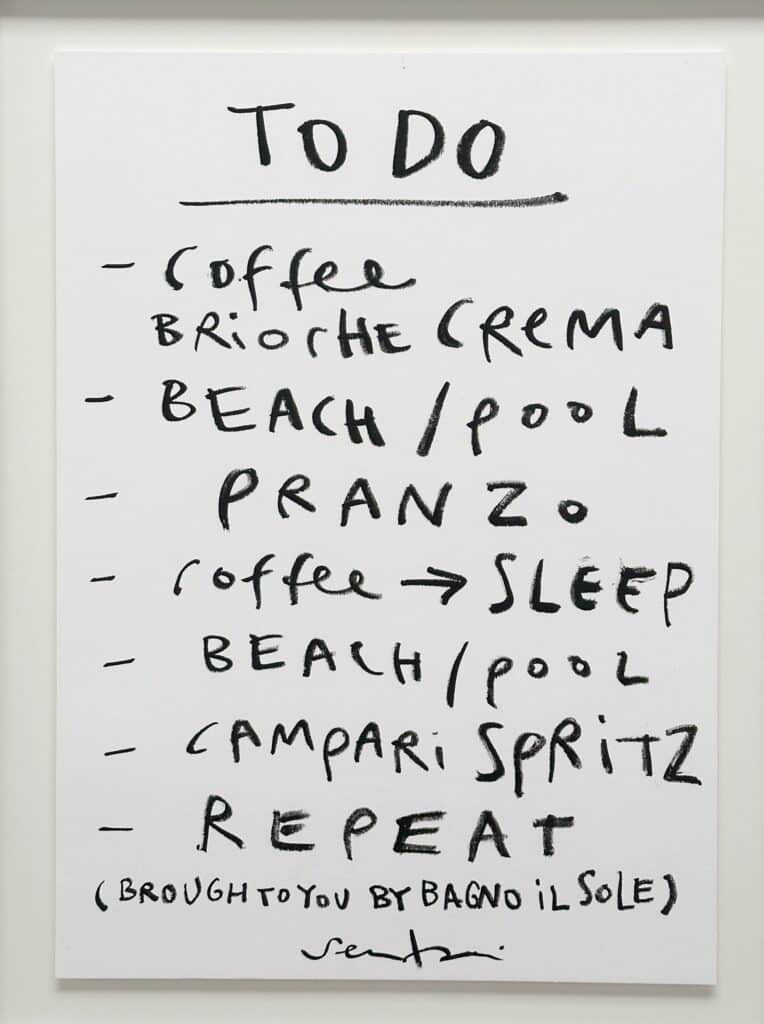 TO DO
- Coffee
BRiOCHE CREMA
- BEACH / POOL
- PRANZO
- Coffee → SLEEP
- BEACH / POOL
- CAMPARi SPRiTZ
- REPEAT
(BROUGH TO YOU BY BAGNO iL SOLE)